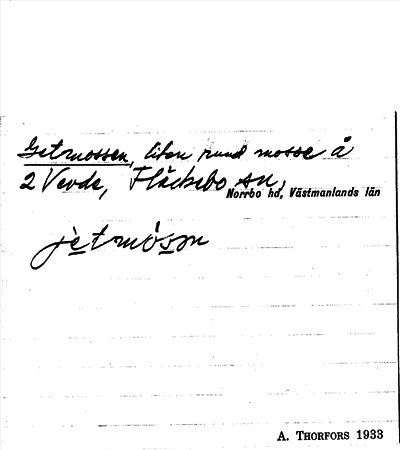 Getmossen, liten rund mosse å
2 Vevde, Fläckebo sn,
Norrbo hd, Västmanlands län
jètmósən
A. THORFORS 1933